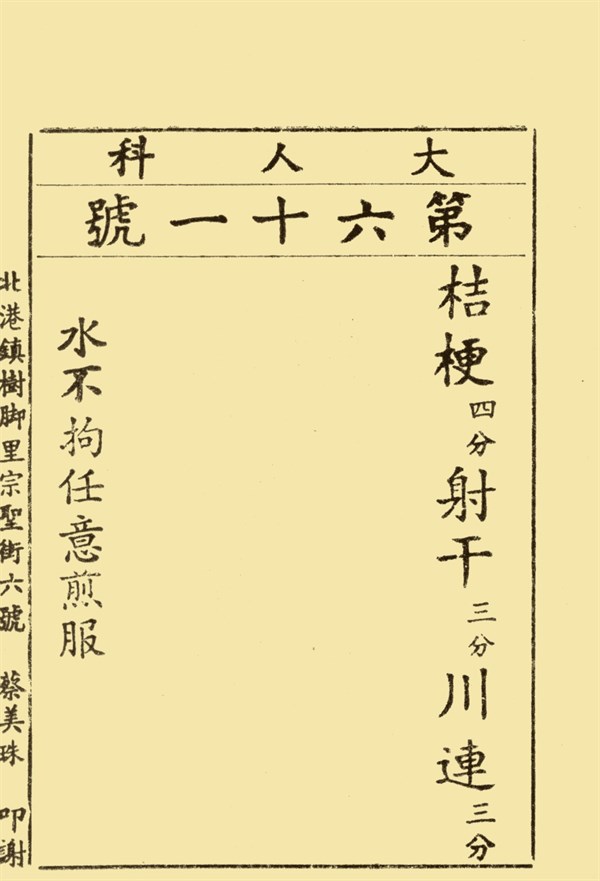 大人科
第六十一號
桔梗四分射干三分川連三分
水不拘任意煎服
北港鎮樹脚里宗聖街六號 蔡美珠 叩謝